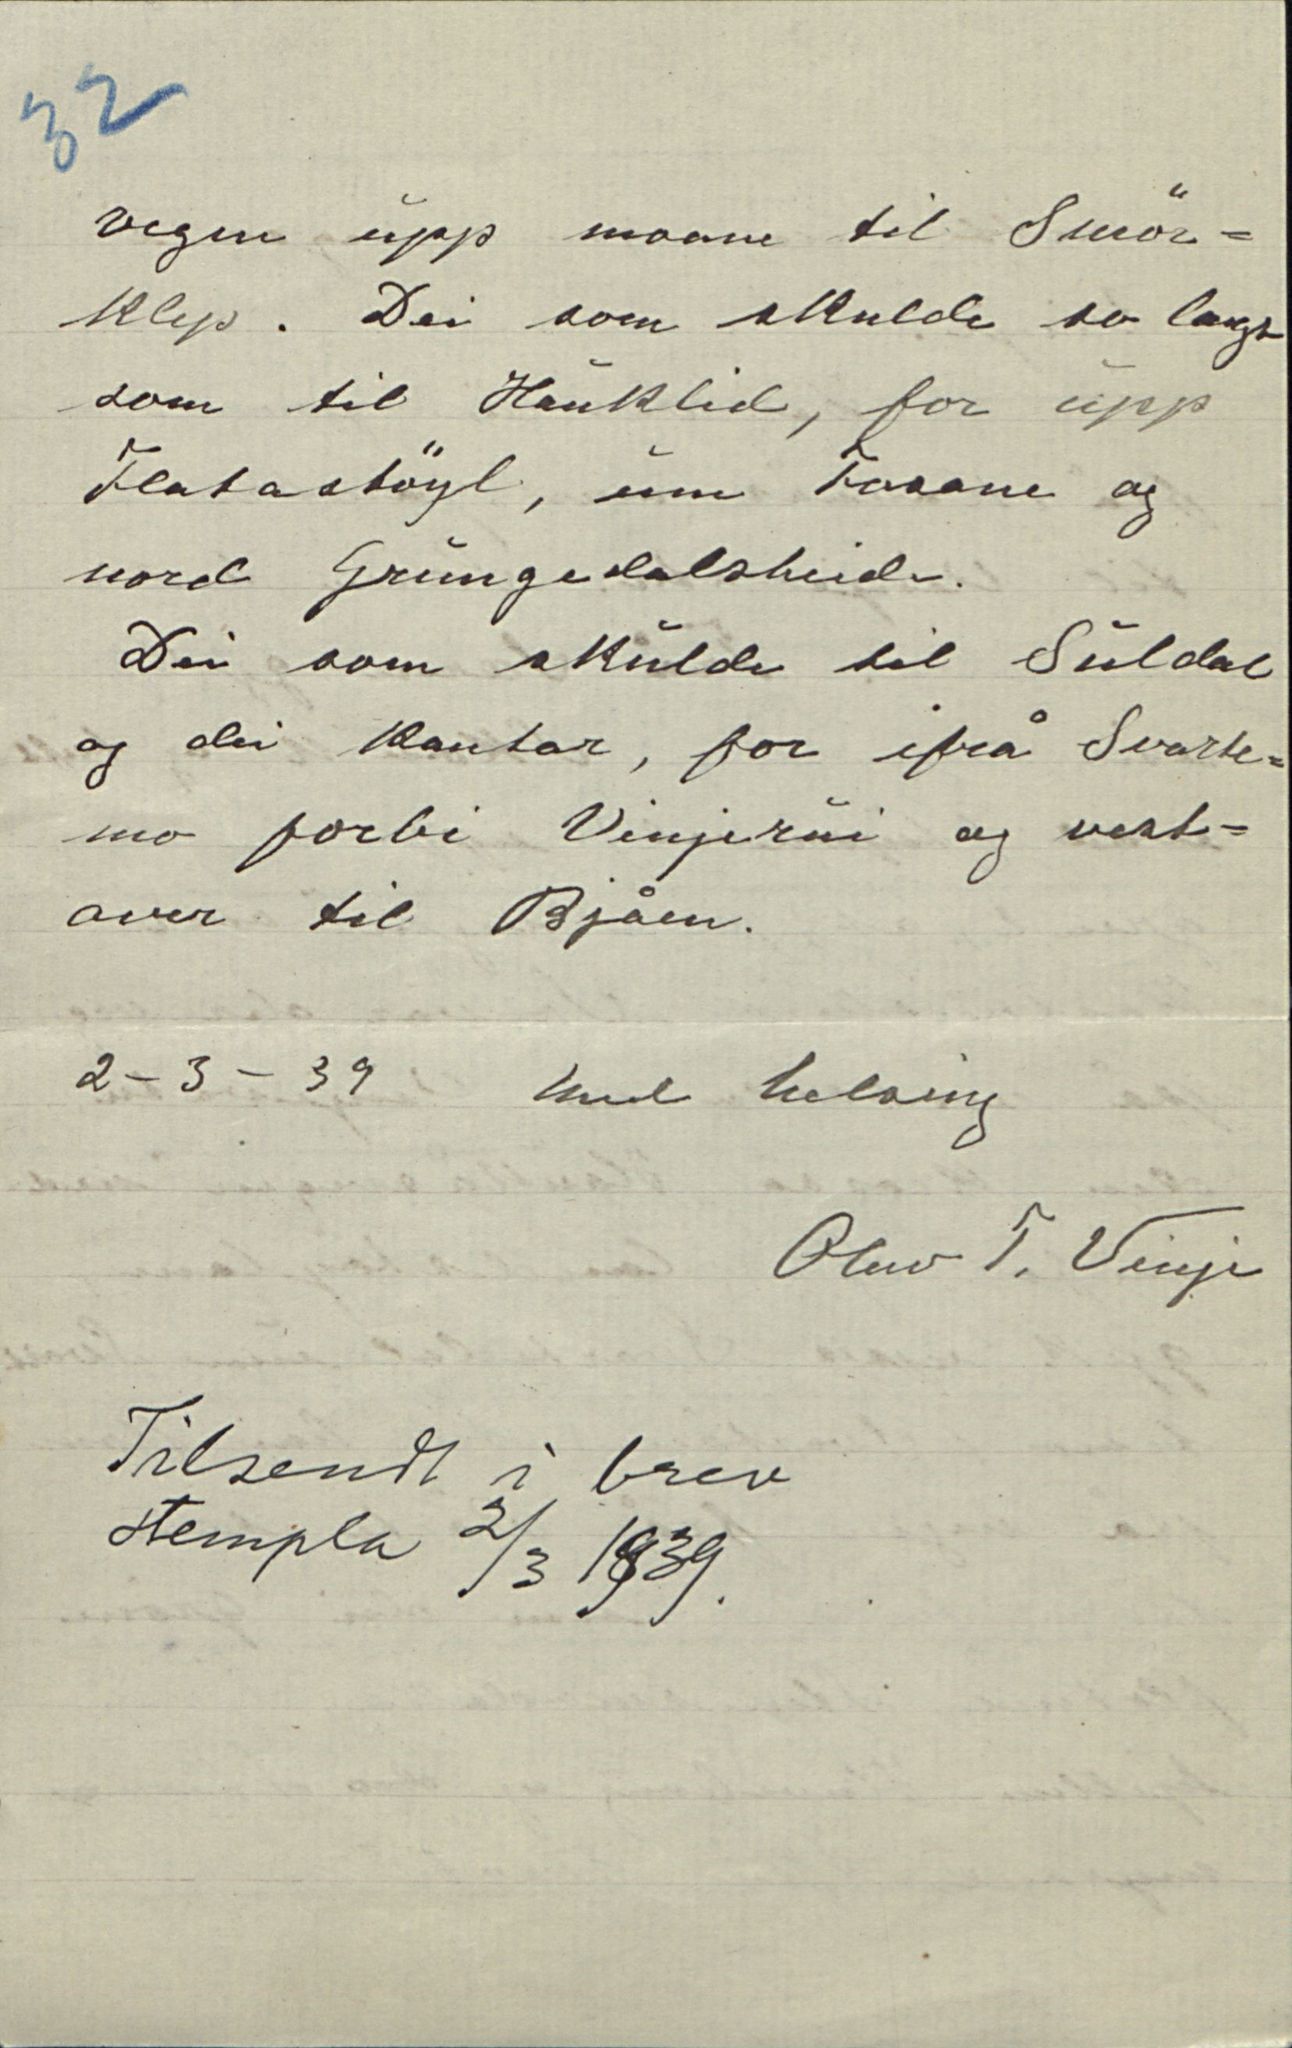 32
vegen upp moane til Smör=
klep. Dei som skulde so langt
som til Hauklid, for upp
Flatastöyl, um Fosane og
nord Grungedalsheidi.
Dei som skulde til Suldal
og dei kantar, for ifrå Svarte=
mo forbi Vinjerui og vest=
over til Bjåen.
2-3-39 Med helsing
Olav T. Vinje
Tilsendt i brev
stempla 2/3 1939.